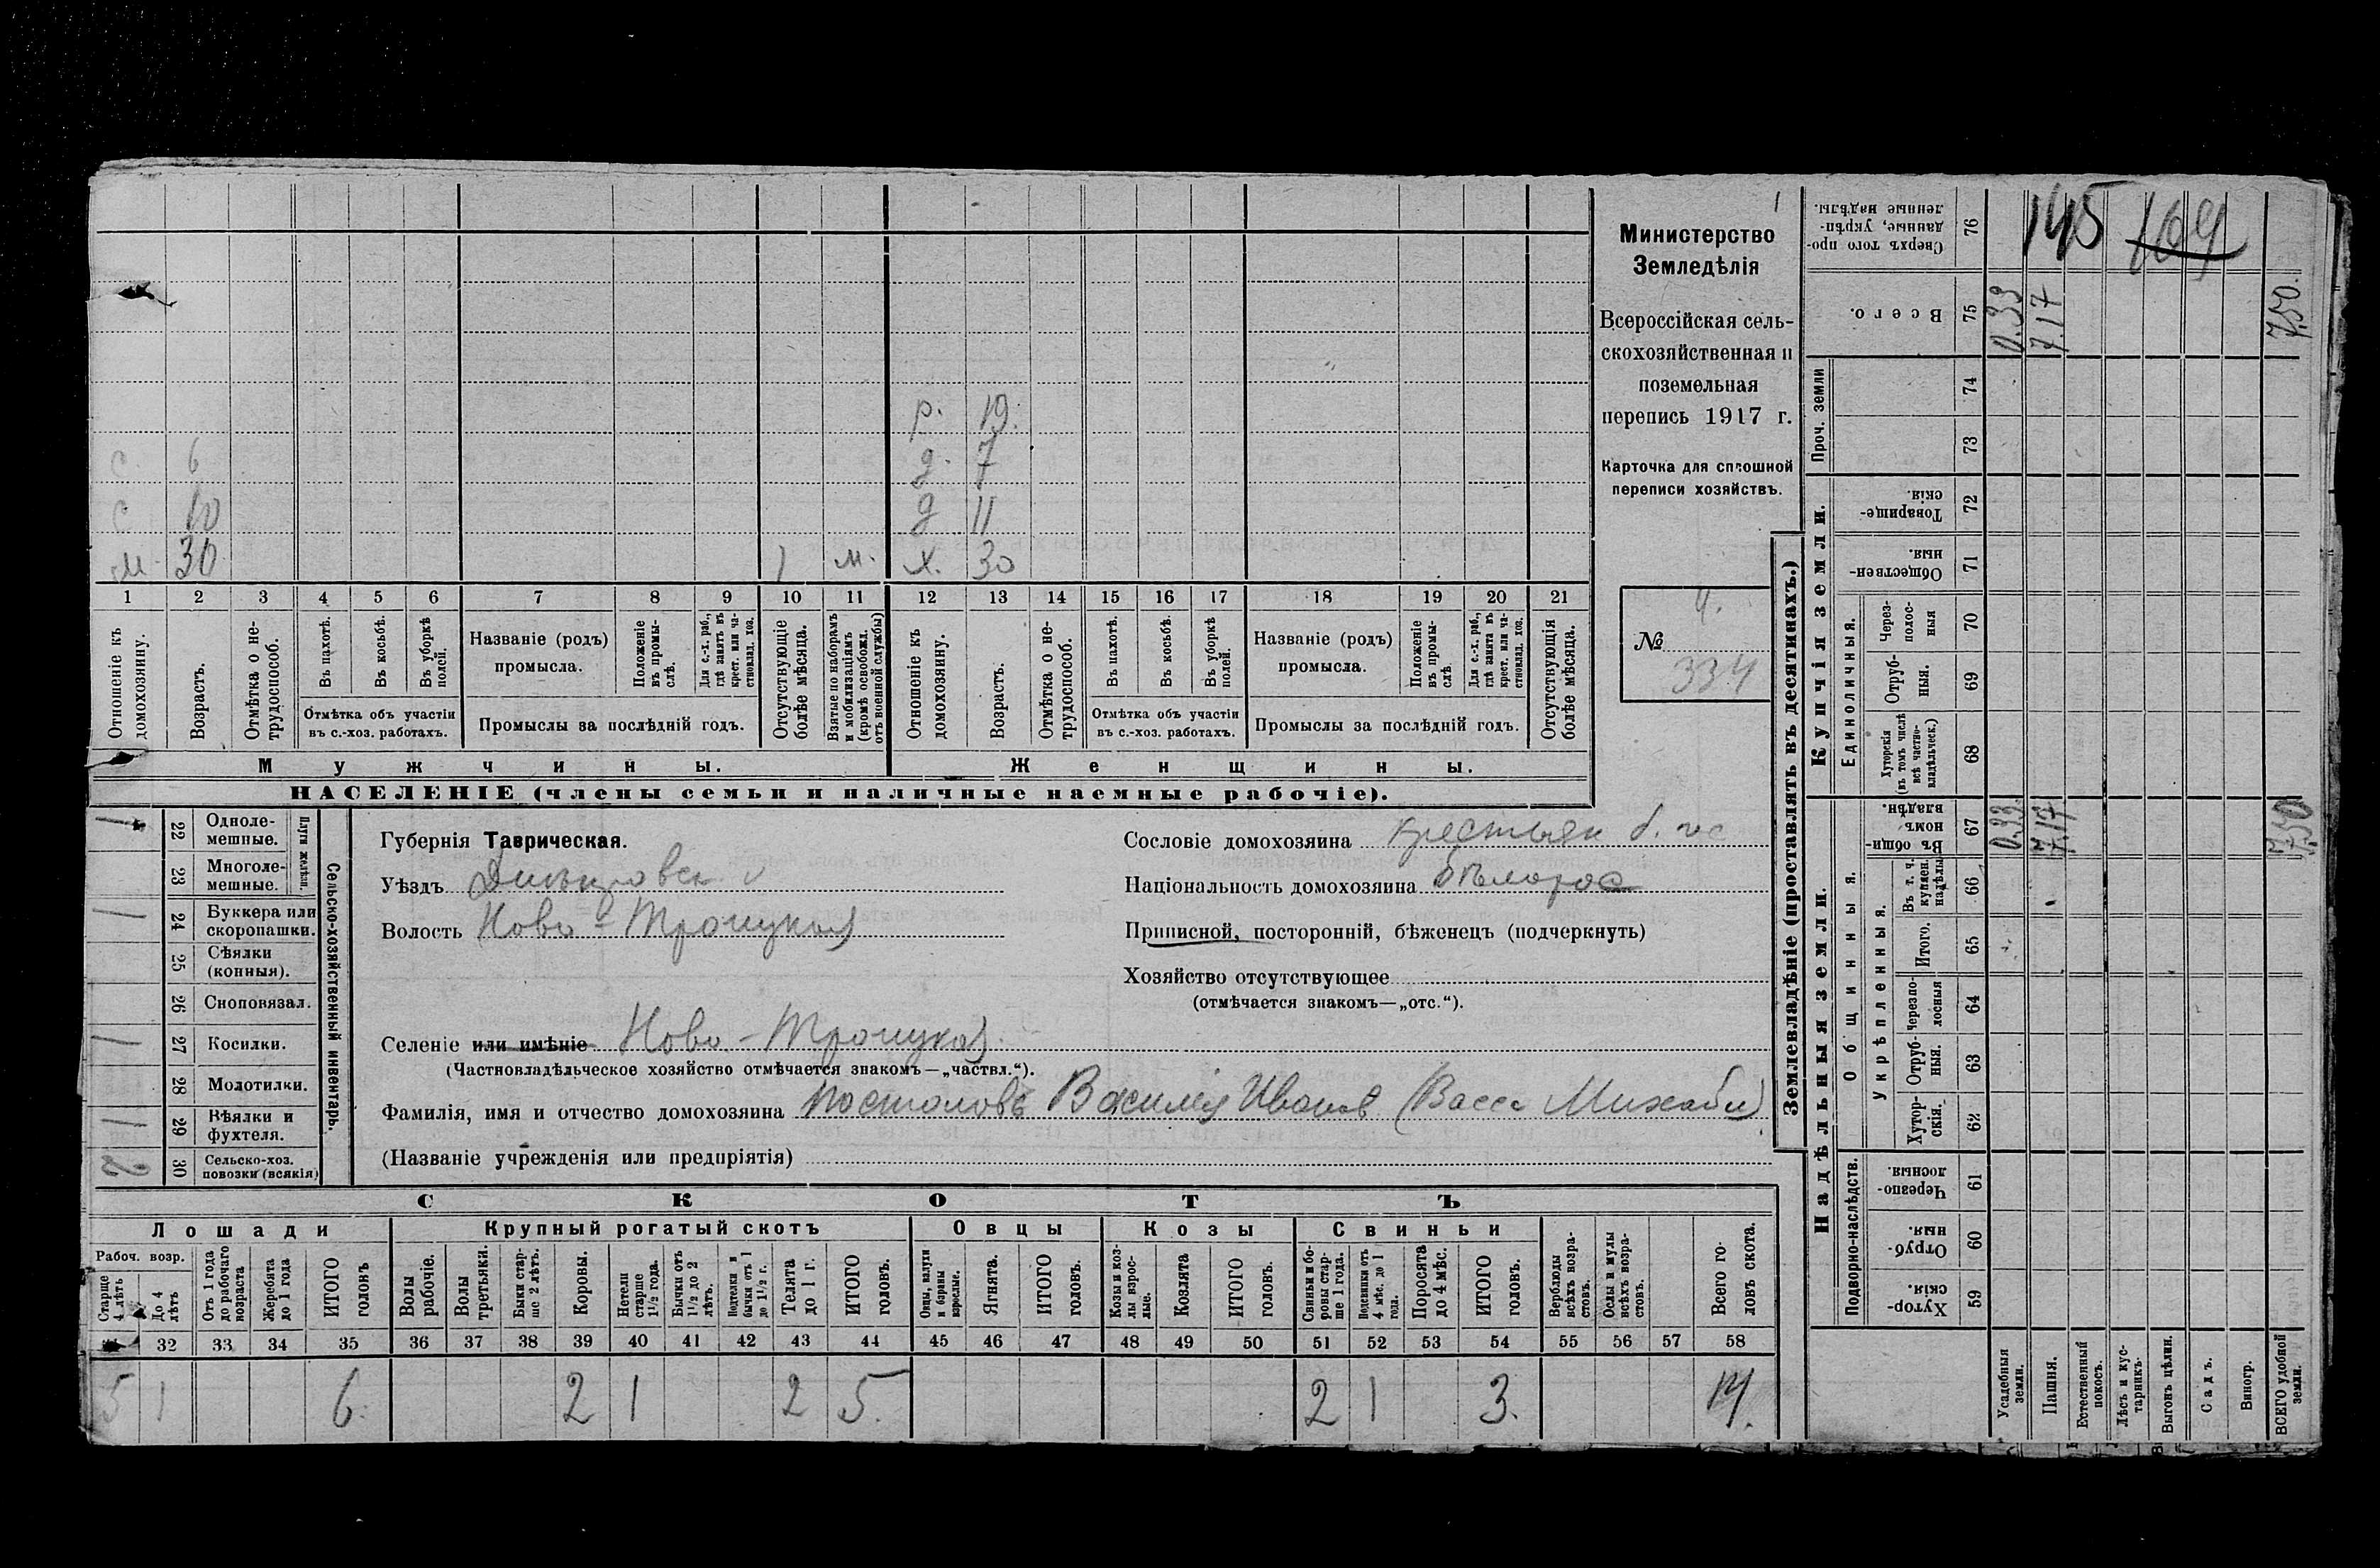 Министерство
Земледѣлія
Всероссійская сель-
скохозяйственная и
поземельная
перепись 1917 г.
Карточка для сплошной
переписи хозяйствъ.
4.
№
334
р. 19.
с 6 д. 7
с 10 д 11
м. 30 1 м. х. 30
1 2 3 4 5 6 7 8 9 10 11 12 13 14 15 16 17 18 19 20 21
Отношеніе къ домохозяину.
Возрастъ.
Отмѣтка о не-трудоспособ.
Въ пахотѣ.
Въ косьбѣ.
Въ уборкѣ полей.
Отмѣтка объ участіи
въ с.-хоз. работахъ.
Названіе (родъ)
промысла.
Положеніе въ промы-слѣ.
Для с.-х. раб., гдѣ занятъ въ крест. или ча-стновлад. хоз.
Промыслы за послѣдній годъ.
Отсутствующіе болѣе мѣсяца.
Взятые по наборамъ и мобилизаціямъ (кромѣ освобожд. отъ военной службы)
Отношеніе къ домохозяину.
Возрастъ.
Отмѣтка о не-трудоспособ.
Въ пахотѣ.
Въ косьбѣ.
Въ уборкѣ полей.
Отмѣтка объ участіи
въ с.-хоз. работахъ.
Названіе (родъ)
промысла.
Положеніе въ промы-слѣ.
Для с.-х. раб., гдѣ занята въ крест. или ча-стновлад. хоз.
Промыслы за послѣдній годъ.
Отсутствующія болѣе мѣсяца.
Мужчины. Женщины.
НАСЕЛЕНІЕ (члены семьи и наличные наемные рабочіе).
Сельско-хозяйственный инвентарь.
Плуги желѣзн.
1 22 Одноле-мешные.
23 Многоле-мешные.
1 24 Буккера или скоропашки.
25 Сѣялки (конныя).
26 Сноповязал.
1 27 Косилки.
28 Молотилки.
1 29 Вѣялки и фухтеля.
2 30 Сельско-хоз. повозки (всякія)
Губернія Таврическая.
Уѣздъ Днѣпровск
Волость Ново-Троицкая
Сословіе домохозяина крестьян б. гос
Національность домохозяина бѣлорос
Приписной, посторонній, бѣженецъ (подчеркнуть)
Хозяйство отсутствующее
(отмѣчается знакомъ—„отс.“).
Селеніе или имѣніе Ново-Троицкая
(Частновладѣльческое хозяйство отмѣчается знакомъ—„частвл.“).
Фамилія, имя и отчество домохозяина Постоловъ Василій Иванов (Васса
(Названіе учрежденія или предпріятія)
СКОТЪ
Лошади Крупный рогатый скотъ Овцы Козы Свиньи
Рабоч. возр.
Старше 4 лѣтъ
До 4 лѣтъ
Отъ 1 года до рабочаго возраста
Жеребята до 1 года
ИТОГО головъ
Волы рабочіе.
Волы третьяки.
Быки стар-ше 2 лѣтъ.
Коровы.
Нетели старше 1½ года.
Бычки отъ 1½ до 2 лѣтъ.
Подтелки и бычки отъ 1 до 1½ г.
Телята до 1 г.
ИТОГО головъ.
Овцы, валухи и бараны взрослые.
Ягнята.
ИТОГО головъ.
Козы и коз-лы взрос-лые.
Козлята
ИТОГО головъ.
Свиньи и бо-ровы стар-ше 1 года.
Подсвинки отъ 4 мѣс. до 1 года.
Поросята до 4 мѣс.
ИТОГО головъ.
Верблюды всѣхъ возра-стовъ.
Ослы и мулы всѣхъ возра-стовъ.
Всего го-ловъ скота.
32 33 34 35 36 37 38 39 40 41 42 43 44 45 46 47 48 49 50 51 52 53 54 55 56 57 58
5 1 6. 2 1 2 5. 2 1 3. 14.
Землевладѣніе (проставлять въ десятинахъ.)
145 169
Сверхъ того про-данные, укрѣп-ленные надѣлы. 76
Всего. 75 0.33 7.17 7.50.
Проч. земли 74
73
Купчія земли.
Товарище-скія. 72
Обществен-ныя. 71
Единоличныя.
Через-полос-ныя 70
Отруб-ныя. 69
Хуторскія (въ томъ числѣ всѣ частно-владѣльческ.) 68
Надѣльныя земли.
Общинныя.
Въ общин-номъ владѣн. 67 0.33 7.17 7.50
Укрѣпленныя.
Въ т. ч. куплен. надѣлы 66
Итого. 65
Черезпо-лосныя 64
Отруб-ныя. 63
Хутор-скія. 62
Подворно-наслѣдств.
Черезпо-лосныя. 61
Отруб-ныя. 60
Хутор-скія. 59
Усадебныя земли.
Пашня.
Естественный покосъ.
Лѣсъ и кус-тарникъ.
Выгонъ цѣлин.
Садъ.
Виногр.
ВСЕГО удобной земли.